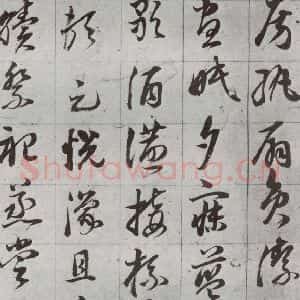 房紈扇員潔
晝眠夕寐藍
歌酒讌接杯
頓足悅豫且
續祭祀蒸嘗
Shufawang.Cn